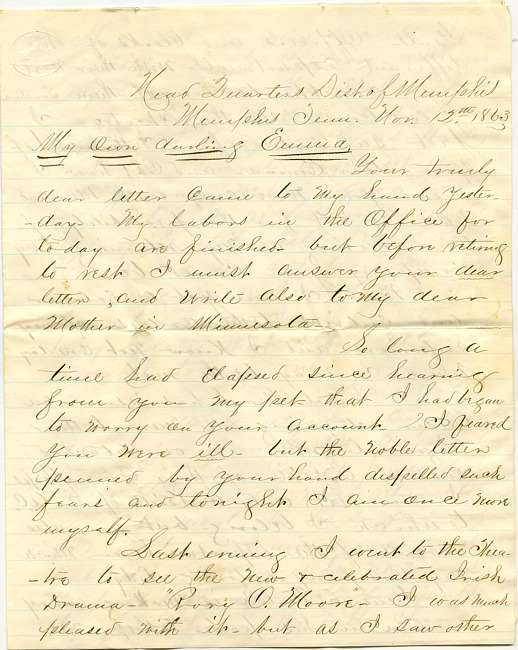 Head Quarters Dist. of Memphis
Memphis Tenn. Nov. 12th 1863
My Own darling Emma,
Your truly
dear letter came to my hand yester-
-day- My labors in the Office for
to day are finished- but before retiring
to rest I must answer your dear
letter, and write also to my dear
Mother in Minnesota-
So long a
time had elapsed since hearing
from you my pet that I had began
to worry on your account I feared
you were ill- but the noble letter
penned by your hand despelled such
fears and tonight I am once more
myself.
Last evening I went to the Thea-
-tre to see the new & celebrated Irish
Drama- "Rory O. Moore"- I was much
pleased with it- but as I saw other